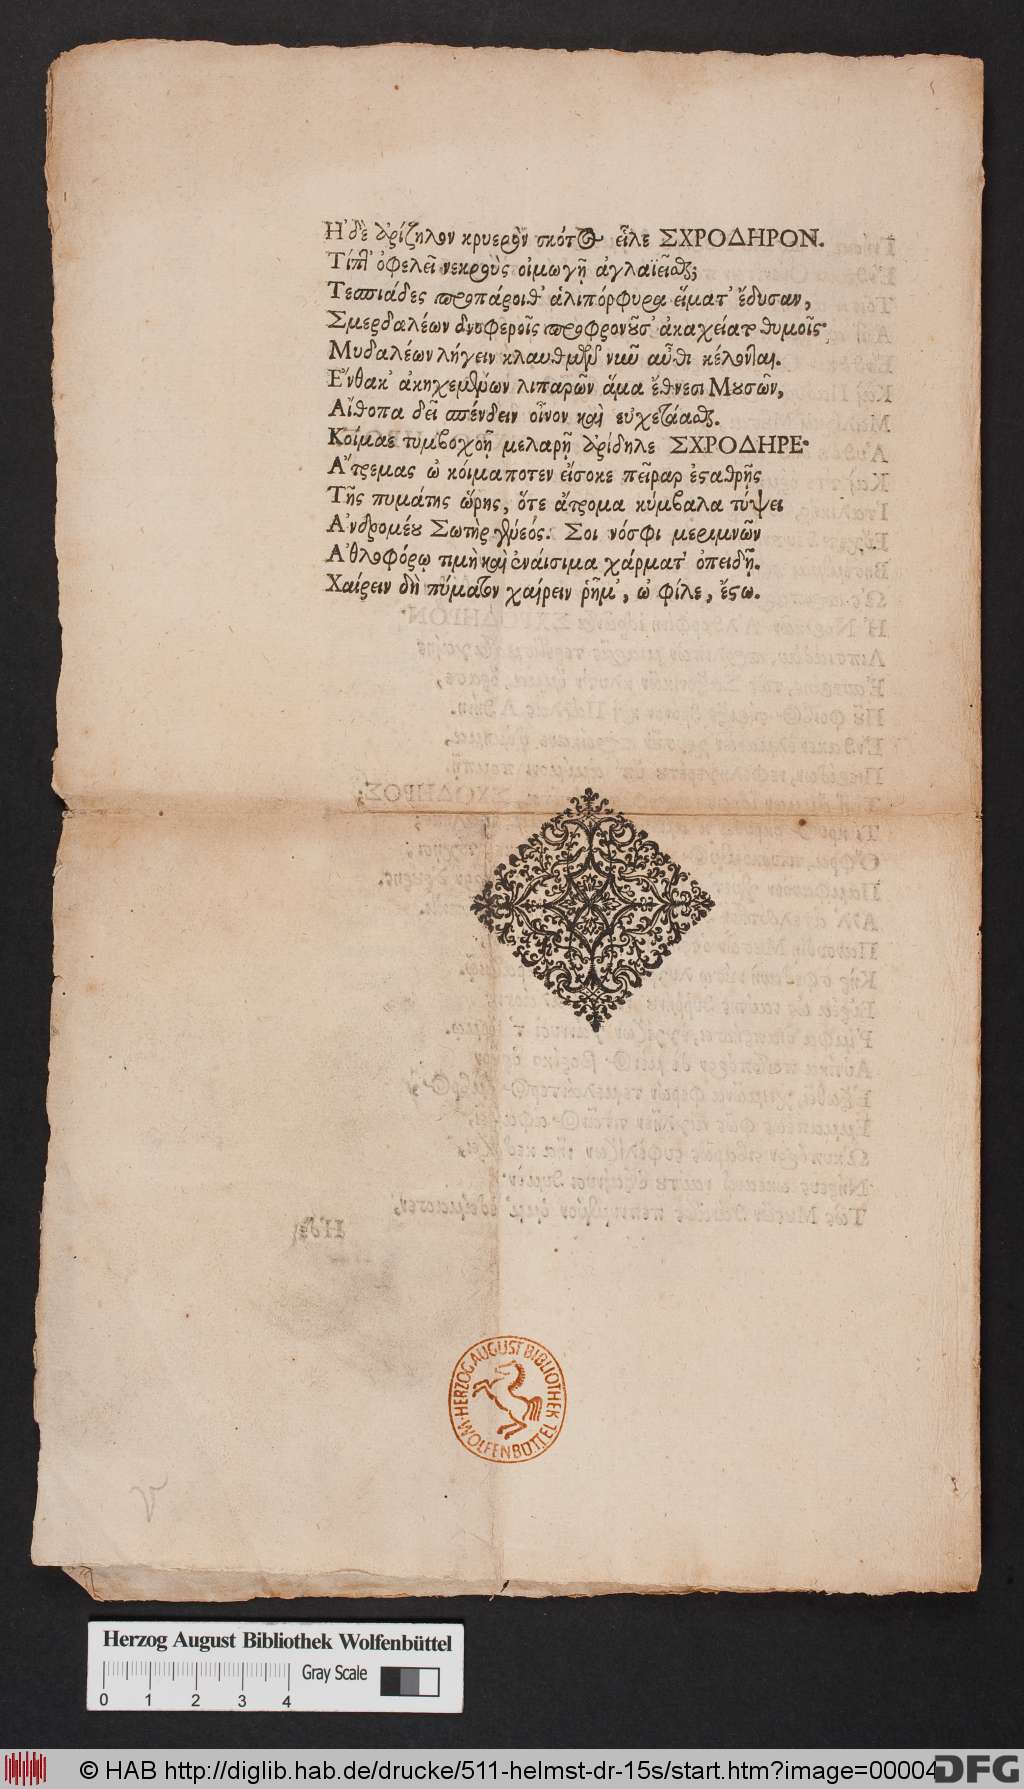 Η᾽ δὲ ἀρίζηλον κρυερὸν σκότος εἷλε ΣΧΡΟΔΗΡΟΝ.
Τίπτ᾽ ὀφελεῖ νεκροὺς οἰμωγῇ ἀγλαϊεῖσθαι;
Τεσσιάδες προπάροιθ᾽ ἁλιπόρφυρα εἵματ᾽ ἔδυσαν,
Σμερδαλέων δνοφεροῖς προφρονοῦσ᾽ ἀκαχείατο θυμοῖς·
Μυδαλέων λήγειν κλαυθμῶν νῦν αὖθι κέλονται.
Ε᾽νθακ᾽ ἀκηχεμένων λιπαρῶν ἅμα ἔθνεσι Μουσῶν,
Αἴθοπα δεῖ σπένδειν οἶνον καὶ εὐχετάασθαι.
Κοίμαε τυμβοχοῇ μελαρῇ ἀρίδηλε ΣΧΡΟΔΗΡΕ·
Α῎τρεμας ὦ κοίμαποτεν εἴσοκε πεῖραρ ἐσαθρῇς
Τῆς πυμάτης ὥρης, ὅτε ἄτρομα κύμβαλα τύψει
Α᾽νδρομέου Σωτὴρ γένεός. Σοι νόσφι μεριμνῶν
Α᾽θλοφόρῳ τιμὴ καὶ ἐναίσιμα χάρματ᾽ ὀπειδῇ.
Χαίρειν δὴ πύματον χαίρειν ῥῆμ᾽, ὦ φίλε, ἔσω.
HERZOG AUGUST BIBLIOTHEK
WOLFENBÜTTEL
Herzog August Bibliothek Wolfenbüttel
Gray Scale
0 1 2 3 4
© HAB http://diglib.hab.de/drucke/511-helmst-dr-15s/start.htm?image=00004
DFG